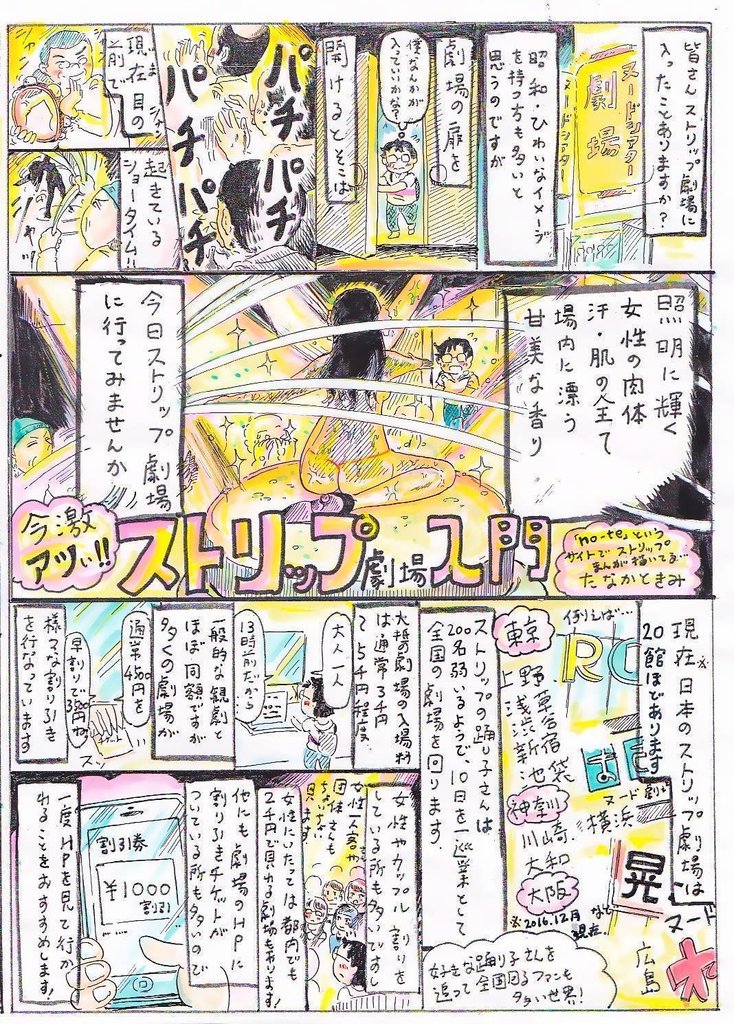 皆さんストリップ劇場に
入ったことありますか?
ヌードシアター
劇場
ヌードシアター
昭和・ひわいなイメージ
を持つ方も多いと
思うのですが
劇場の扉を
僕なんかが
入っていいかな?
開けるとそこは
パチ
パチ
パチ
パチ
現在目の
前で
起きている
ショータイム!!
照明に輝く
女性の肉体
汗・肌の全て
場内に漂う
甘美な香り
今日ストリップ劇場
に行ってみませんか
今激
アツい!!
ストリップ劇場入門
「no-te」という
サイトでストリップ
まんが描いてます
たなかときみ
現在※日本のストリップ劇場は
20館ほどあります
例えば…
東京
上野
浅草
渋谷
新宿
池袋
神奈川
川崎
大和
横浜
大阪
など
※2016.12月
現在。
晃
ヌード
広島
ストリップの踊り子さんは
200名弱いるようで、10日を一巡業として
全国の劇場を回ります。
好きな踊り子さんを
追って全国回るファンも
多い世界!
大抵の劇場の入場料
は通常3千円
〜5千円程度
大人一人
13時前だから
一般的な観劇と
ほぼ同額ですが
多くの劇場が
通常4500円を
早割りで3500円ね
スッ
様々な割り引き
を行なっています
女性やカップル割りを
している所も多いですし
女性一人客や
団体さんも
見ます。
女性にいたっては都内でも
2千円で見れる劇場もあります!
他にも劇場のHPに
割り引きチケットが
ついている所も多いので
割引券
¥1000
割引
一度HPを見て行か
れることをおすすめします!